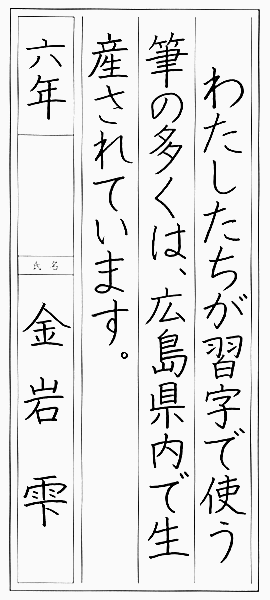 わたしたちが習字で使う
筆の多くは、広島県内で生
産されています。
六年
氏名
金岩雫